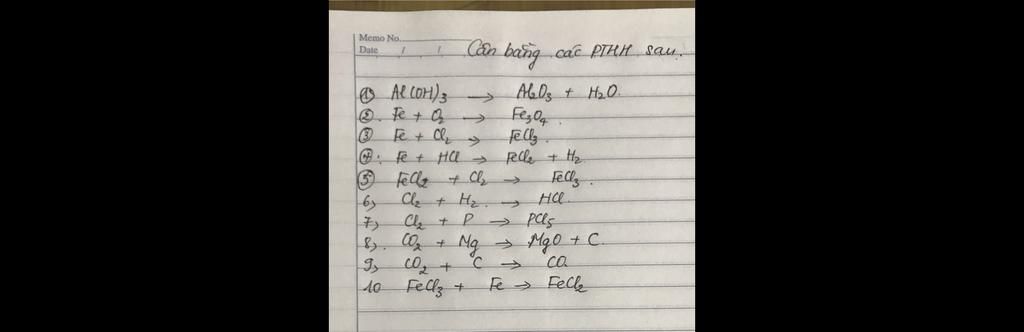 Memo No.
Date / /
Cân bằng các PTHH sau.
① Al(OH)3 → Al2O3 + H2O.
②. Fe + O2 → Fe3O4.
③ Fe + Cl2 → FeCl3.
④: Fe + HCl → FeCl2 + H2.
⑤ FeCl2 + Cl2 → FeCl3.
6, Cl2 + H2 → HCl.
7, Cl2 + P → PCl5
8,. CO2 + Mg → MgO + C.
9, CO2 + C → CO.
10 FeCl3 + Fe → FeCl2